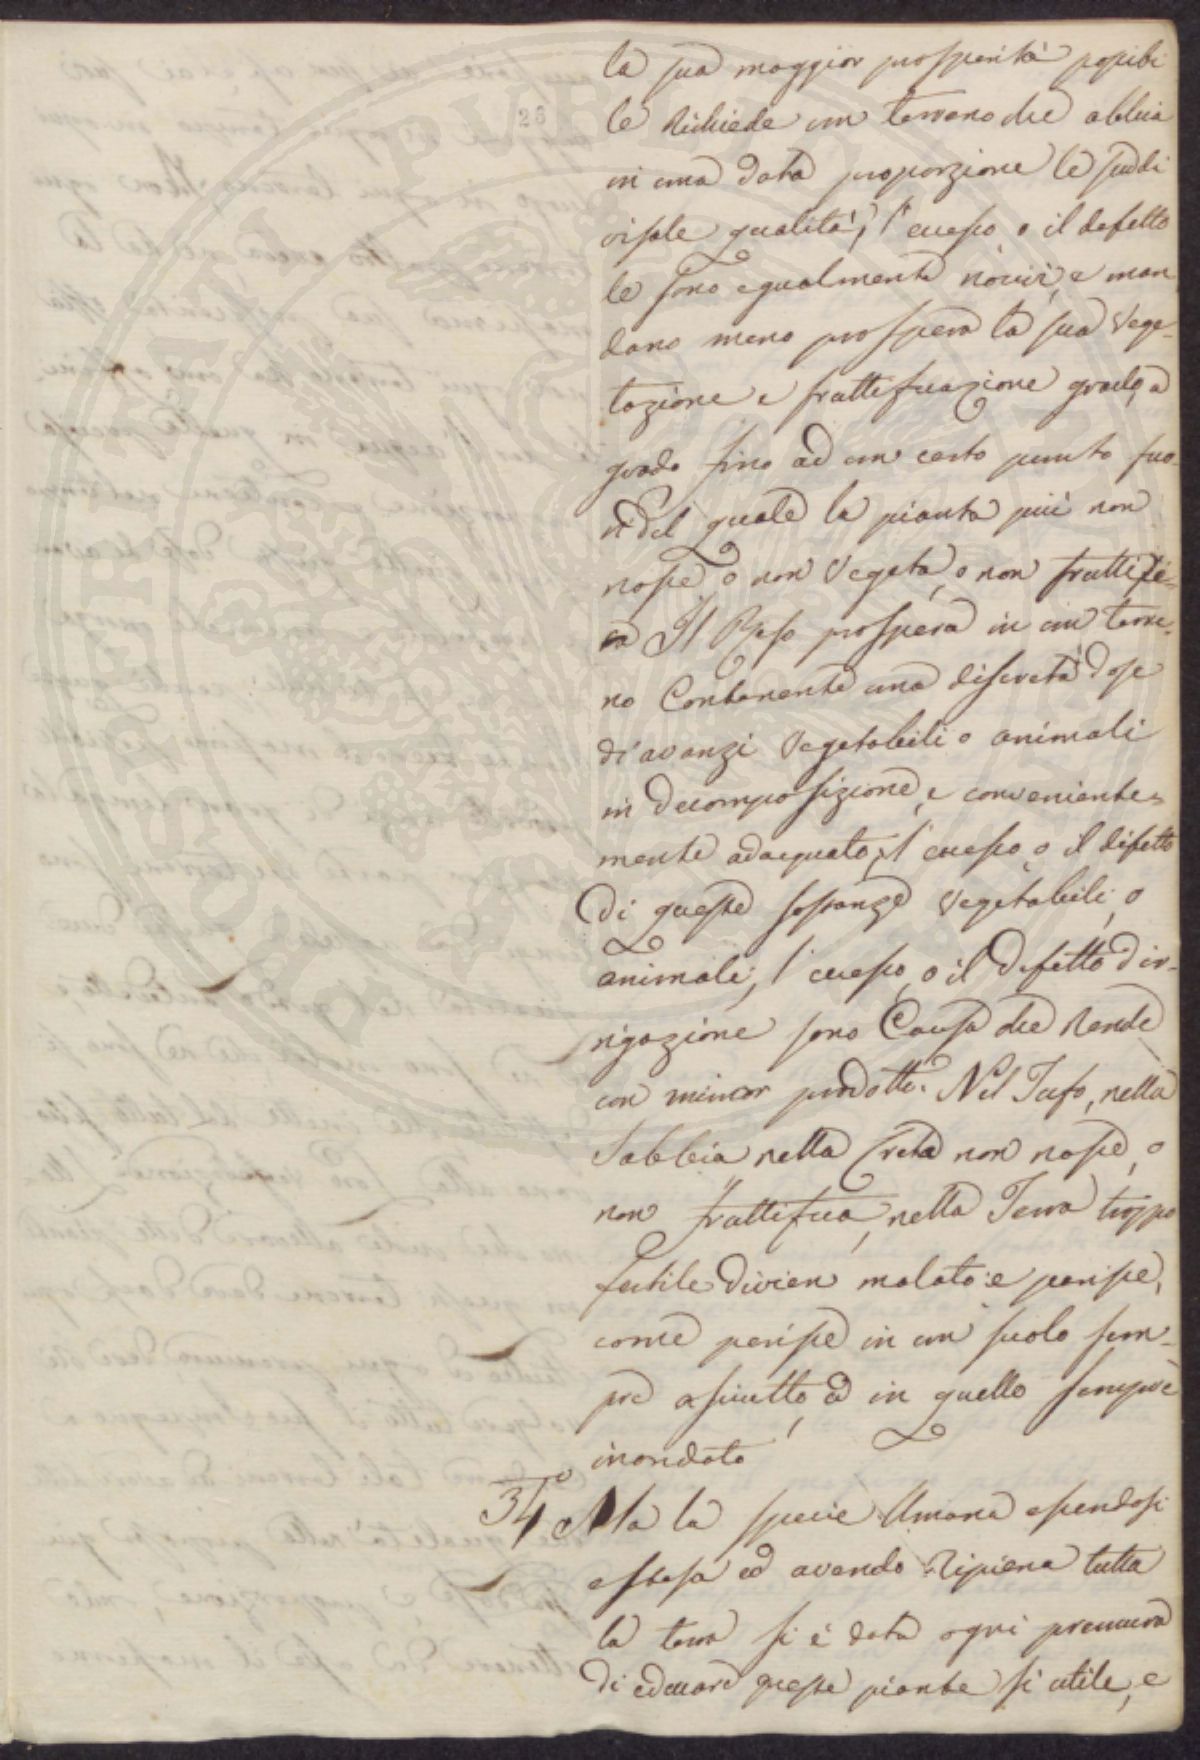 la sua maggior prosperità possibi
le Richiede un terreno che abbia
in una data proporzione le suddi
visate qualità, l'eccesso o il defetto
le sono egualmente nocivi, e man
dano meno prospera la sua Vege-
tazione e fruttificazione grado, a
grado fino ad un certo punto fuo-
ri del quale la pianta più non
nasce o non Vegeta, o non fruttife-
ra Il Riso prospera in un terre-
no Contenente una discreta dose
di avanzi Vegetabili o animali
in decomposizione, e conveniente-
mente adacquato; l'eccesso o il difetto
Di queste sostanze Vegetabili, o
animali, l'eccesso, o il difetto d'ir-
rigazione sono Causa che Rende
un minor prodotto. Nel Tufo, nella
Sabbia nella Creta non nasce, o
non fruttifica, nella Terra troppo
fertile divien malato e perisce,
come perisce in un suolo sem-
pre asciutto, ed in quello sempre
inondato
34° Ma la specie Umana essendosi
estesa ed avendo Ripiena tutta
la terra si è data ogni premura
di educare queste piante si utile, e